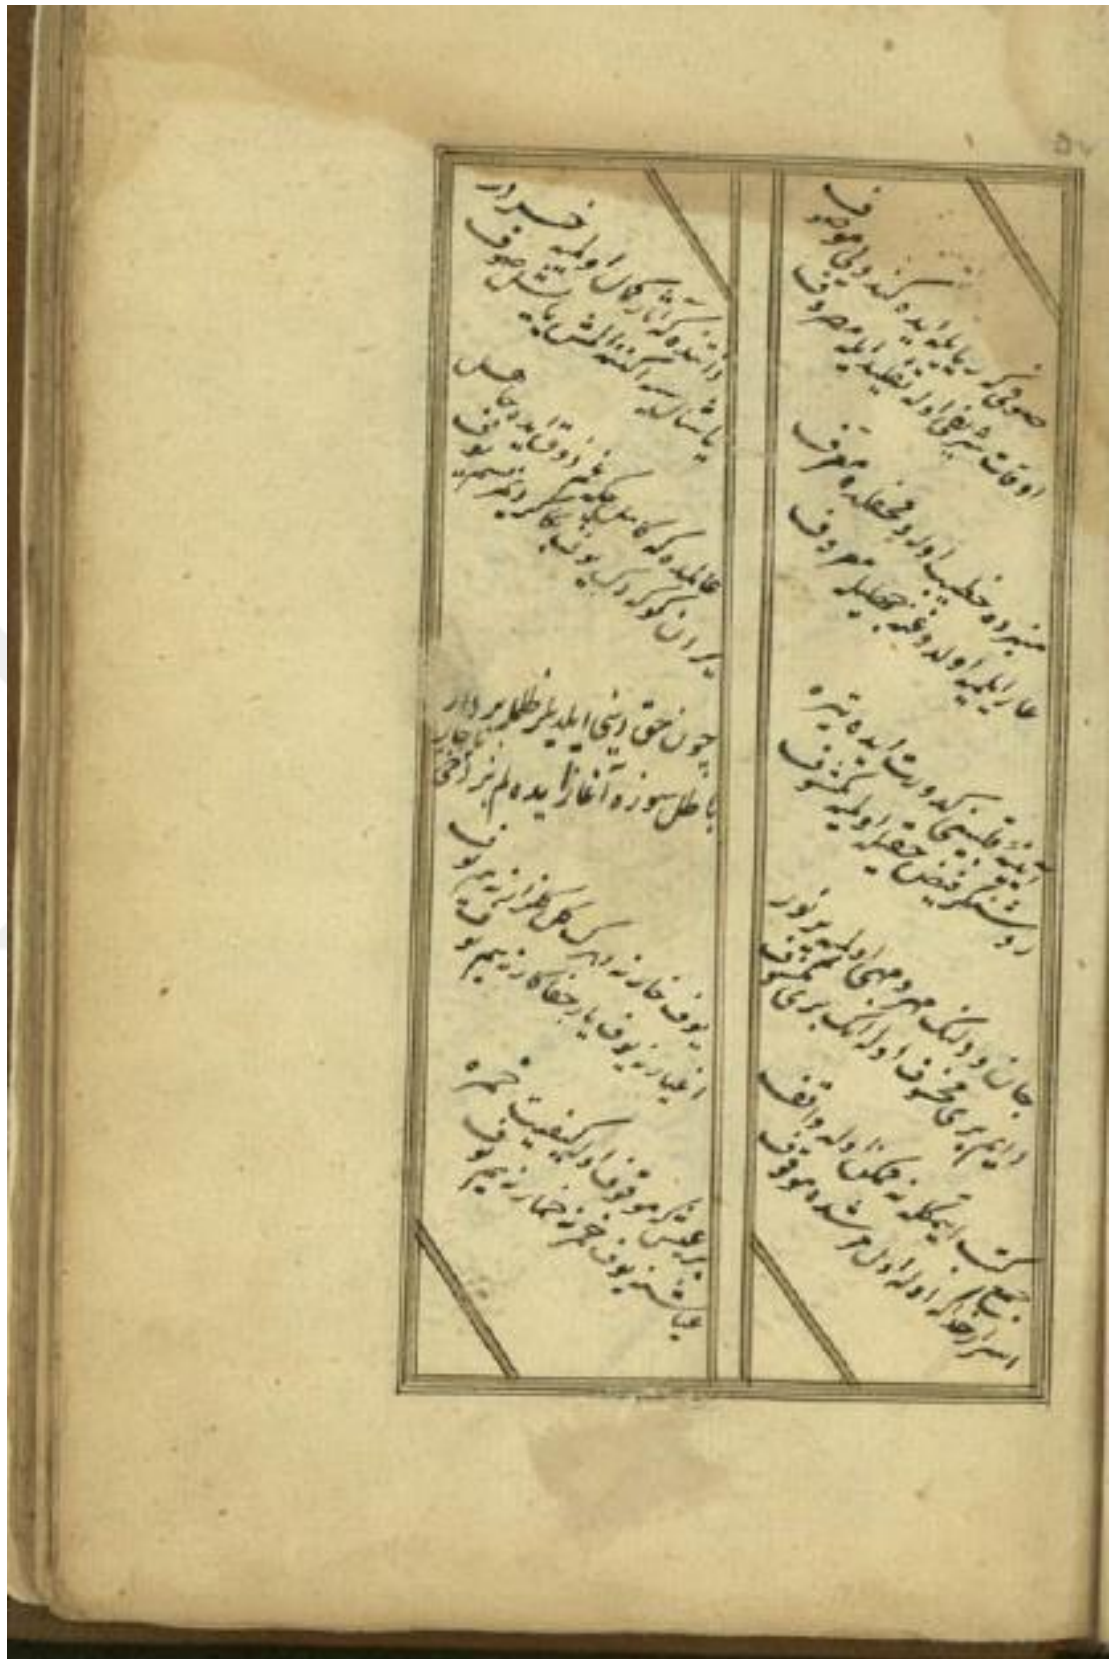 صوفی که ریا ایله ایده کندویی موصوف
اوقات شریفی اوله تقلید ایله مصروف
منبرده خطیب اوله و محفلده معرف
عار ایلمیه اولدوغنه جهلیله معروف
آیینهٔ قلبینی کدورت ایده تیره
روشنگر فیض حقه اولمیه مکشوف
جان و دلنک مهر و مهی اولمیه پرنور
دایم بری مخسوف اوله انک بری مکسوف
جمع کتب ایتمکله نه ممکن اوله واقف
اسرار حقه اوله اول مرشده موقوف
داننده که آثار کمال اولمیه خبردار
یا شال سیه اکننه المش یا یشل صوف
عالمده که کامل چکه غم ذوق ایده جاهل
یردن کوکه دک یوف بکا کر دیمز ایسم یوف
چون حق دینی ایلدیلر ظلمله بردار
باطل سوزه آغاز ایده لم بز دخی ناچار
یوف خارنه دهرک کل کلزارنه هم یوف
اغیارنه یوف یار جفاکارنه هم یوف
بر عیش که موقوف اوله کیفیت خمره
عیاشنه یوف خمرنه خمارنه هم یوف